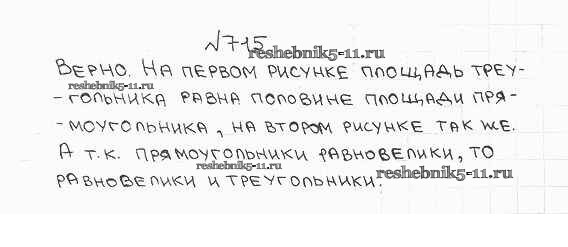 №715
reshebnik5-11.ru
Верно. На первом рисунке площадь треу-
reshebnik5-11.ru
-гольника равна половине площади пря-
-моугольника, на втором рисунке так же.
А т.к. прямоугольники равновелики, то
reshebnik5-11.ru
равновелики и треугольники.
reshebnik5-11.ru